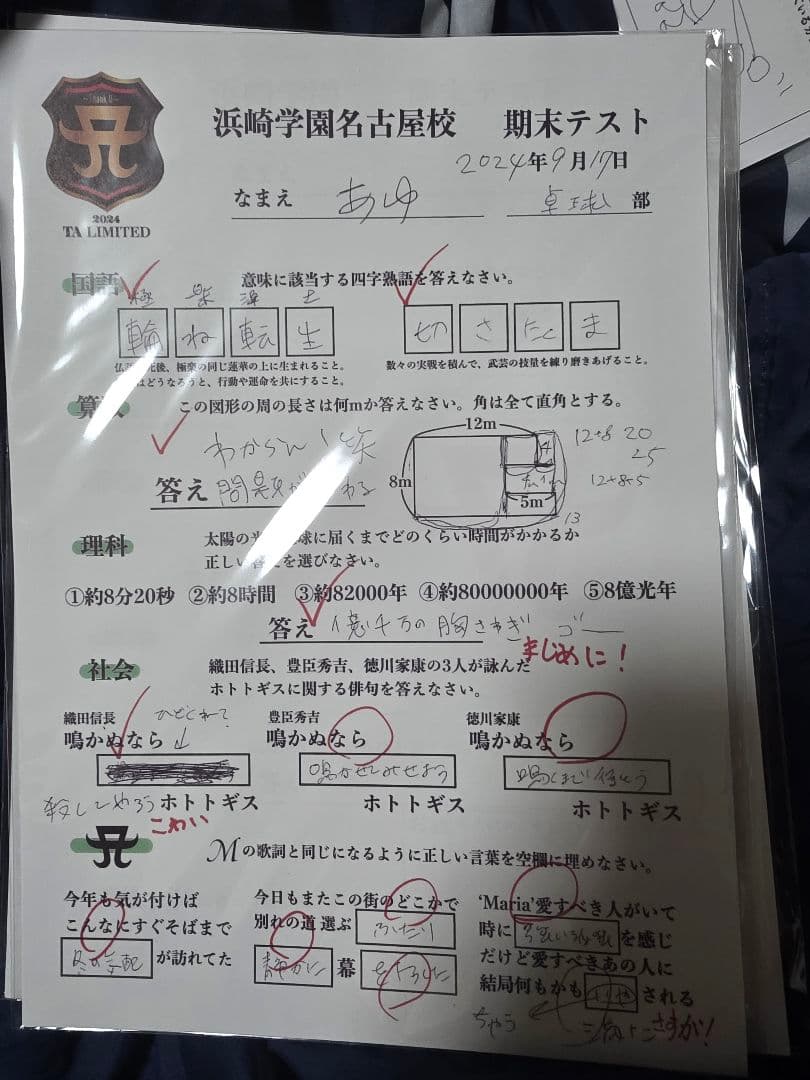 Thank U
2024
TA LIMITED
浜崎学園名古屋校 期末テスト
2024年9月17日
なまえ あゆ 卓球 部
国語 意味に該当する四字熟語を答えなさい。
極 楽 浄 土
輪 ね 転 生
切 さ た ま
死後、極楽の同じ蓮華の上に生まれること。
はどうなろうと、行動や運命を共にすること。
数々の実戦を積んで、武芸の技量を練り磨きあげること。
この図形の周の長さは何mか答えなさい。角は全て直角とする。
わからん 笑
答え 問題が
12m
8m
4
5m
12+8 20
25
12+8+5
13
理科 太陽の光 球に届くまでどのくらい時間がかかるか
正しい を選びなさい。
①約8分20秒 ②約8時間 ③約82000年 ④約80000000年 ⑤8億光年
答え 億千万の胸さわぎ ゴー
まじめに!
社会 織田信長、豊臣秀吉、徳川家康の3人が詠んだ
ホトトギスに関する俳句を答えなさい。
織田信長 ひどくねて?
鳴かぬなら ↓
殺してやろう ホトトギス
こわい
豊臣秀吉
鳴かぬなら
鳴かせてみせよう
ホトトギス
徳川家康
鳴かぬなら
鳴くまで待とう
ホトトギス
Mの歌詞と同じになるように正しい言葉を空欄に埋めなさい。
今年も気が付けば
こんなにすぐそばまで
冬の気配 が訪れてた
今日もまたこの街のどこかで
別れの道選ぶ ふたり
静かに 幕 をおろした
‘Maria’愛すべき人がいて
時に を感じ
だけど愛すべきあの人に
結局何もかも される
ちゃう
さすが!